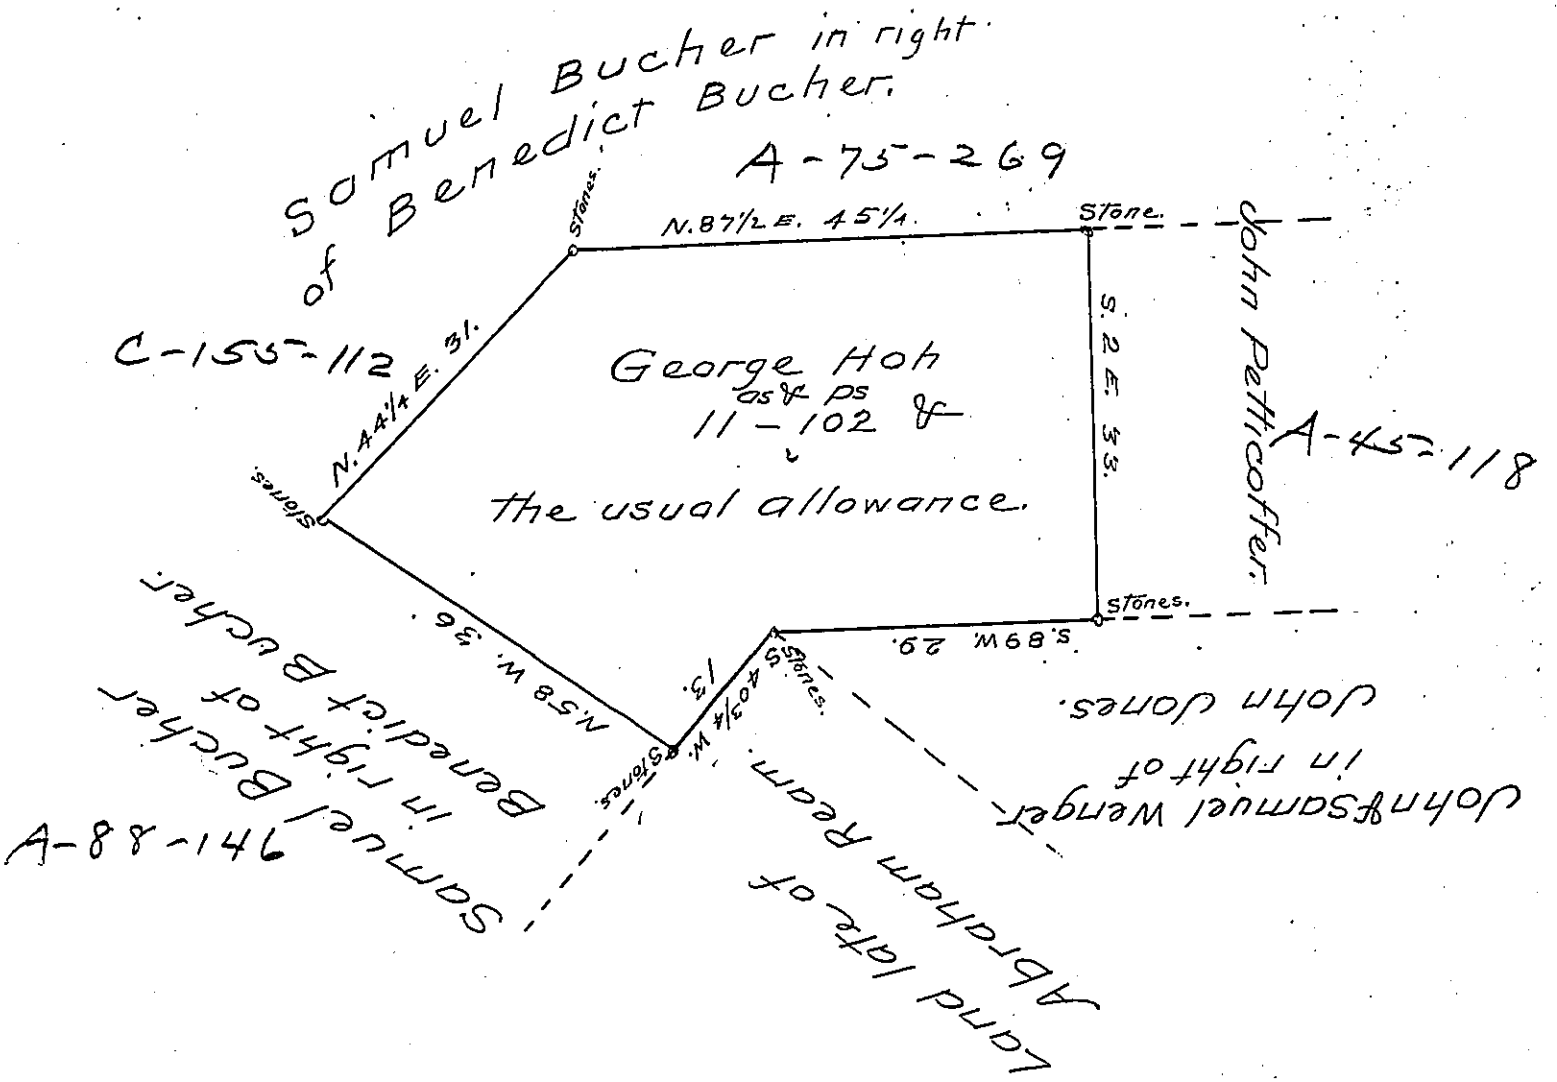 Samuel Bucher in right
of Benedict Bucher.
A-75-269
Stones.
N. 87 1/2 E. 45 1/4.
Stone.
John Petticoffer.
A-45-118
S. 2 E. 33.
C-155-112
N. 44 1/4 E. 31.
George Hoh
as & ps
11 - 102 &
the usual allowance.
Stones.
Stones.
S. 89 W. 29.
Stones.
S 40 3/4 W.
13.
N. 58 W. 36
Stones.
Samuel Bucher
in right of
Benedict Bucher.
A-88-146
Land late of
Abraham Ream.
John & Samuel Wenger
in right of
John Jones.